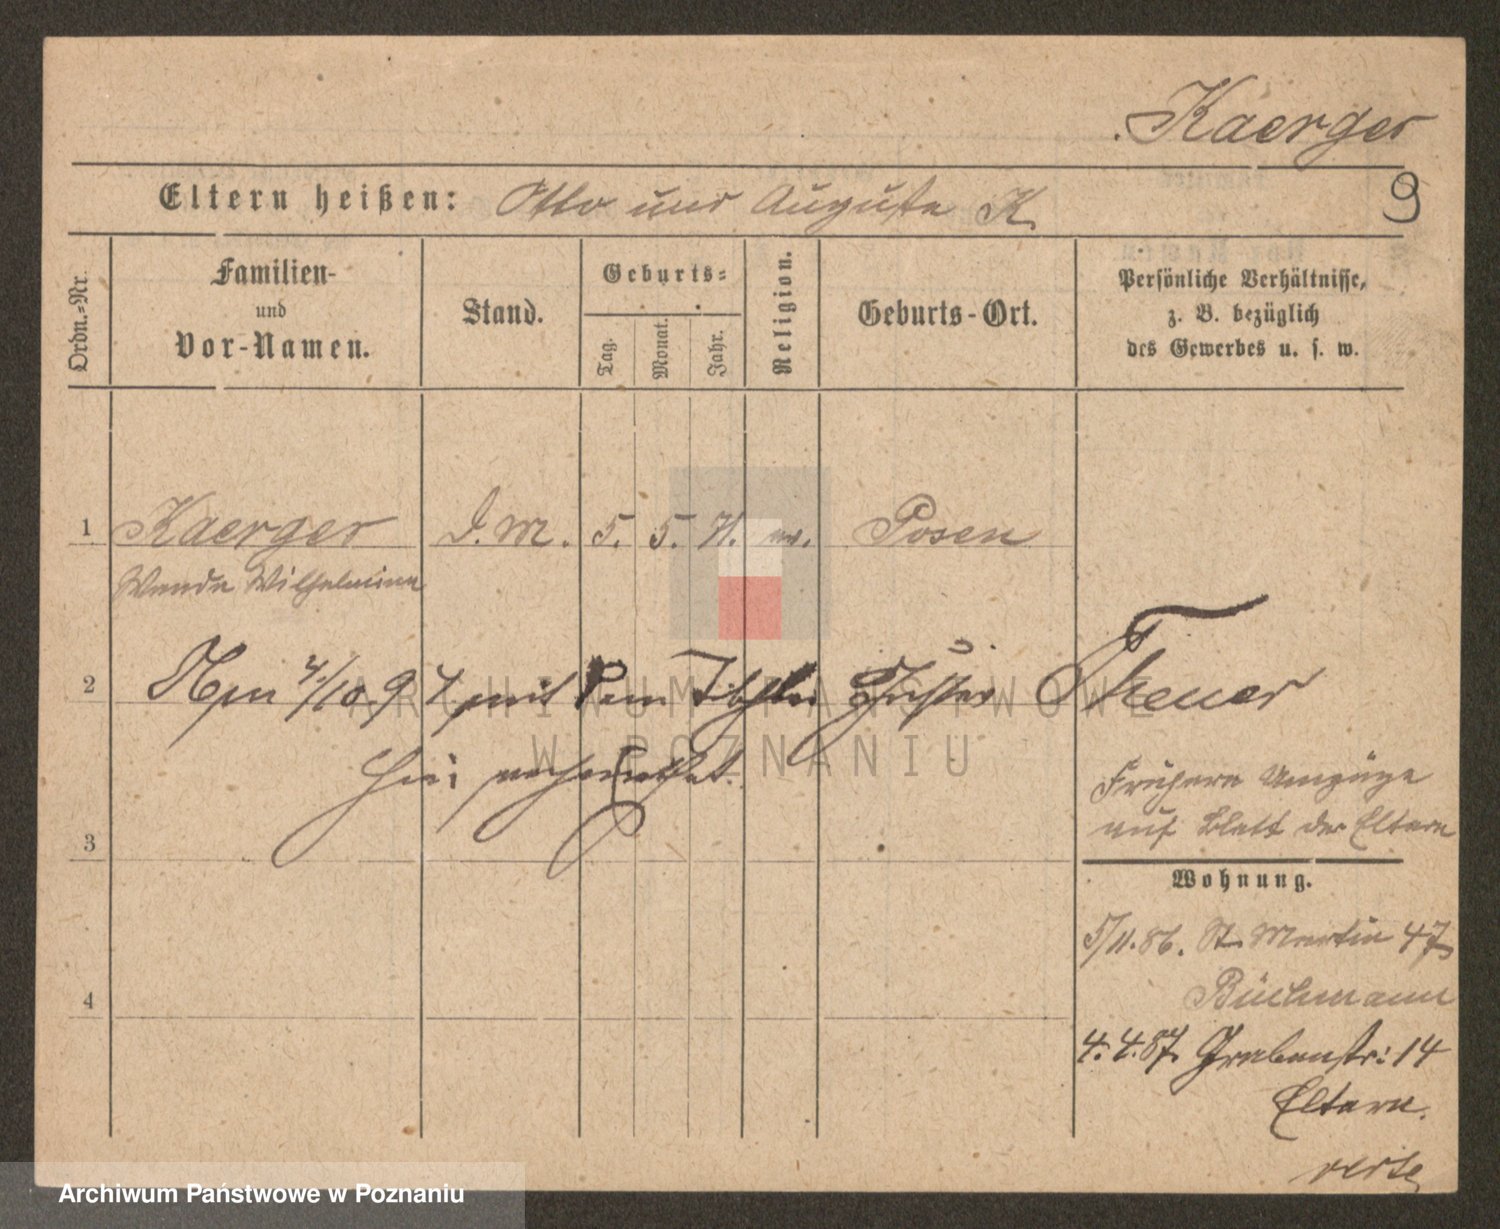 Kaerger
9
Eltern heißen: Otto und Auguste K.
Ordn.-Nr.
Familien-
und
Vor-Namen.
Stand.
Geburts-
Tag.
Monat.
Jahr.
Religion.
Geburts-Ort.
Persönliche Verhältnisse,
z. B. bezüglich
des Gewerbes u. s. w.
1 Kaerger D. M. 5. 5. 71. ev. Posen
Wanda Wilhelmine
2 4/10 97 mit dem Theuer
hier verheirathet.
Frühere Umzüge
auf Blatt der Eltern
3
Wohnung.
5/11. 86. St. Martin 47
Büchmann
4
4. 4. 87. Grabenstr: 14
Eltern.
verte
ARCHIWUM PAŃSTWOWE
W POZNANIU
Archiwum Państwowe w Poznaniu